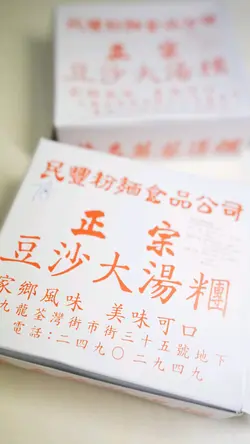 民豐粉麵食品公司
正宗
豆沙大湯糰
民豐粉麵食品公司
正宗
豆沙大湯糰
家鄉風味 美味可口
九龍荃灣街市街三十五號地下
電話：二四九〇二九四九